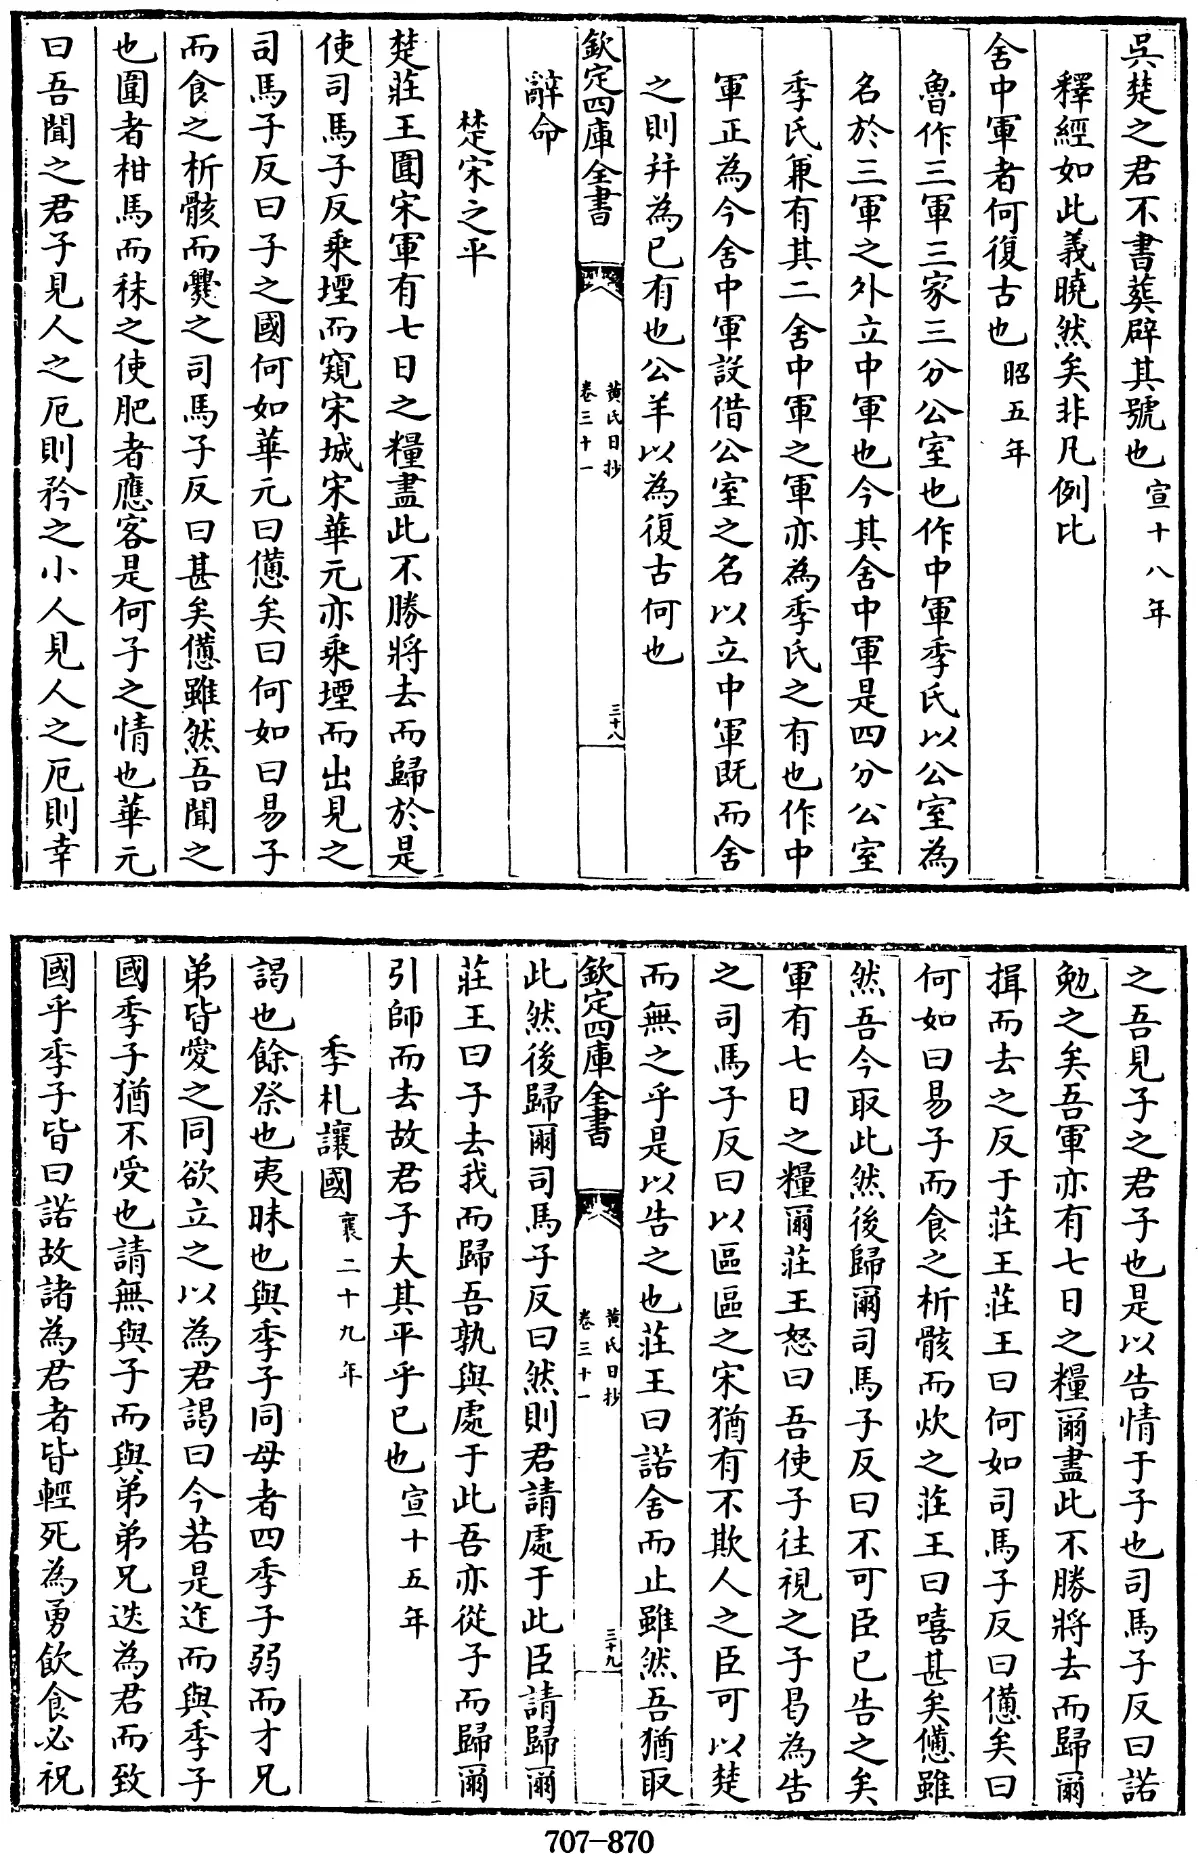 吳楚之君不書葬辟其號也宣十八年
釋經如此義曉然矣非凡例比
舍中軍者何復古也昭五年
魯作三軍三家三分公室也作中軍季氏以公室為
名於三軍之外立中軍也今其舍中軍是四分公室
季氏兼有其二舍中軍之軍亦為季氏之有也作中
軍正為今舍中軍設借公室之名以立中軍既而舍
之則并為已有也公羊以為復古何也
欽定四庫全書
黄氏日抄
卷三十一
三十八
辭命
楚宋之平
楚莊王圍宋軍有七日之糧盡此不勝將去而歸於是
使司馬子反乘堙而窺宋城宋華元亦乘堙而出見之
司馬子反曰子之國何如華元曰憊矣曰何如曰易子
而食之析骸而爨之司馬子反曰甚矣憊雖然吾聞之
也圍者柑馬而秣之使肥者應客是何子之情也華元
曰吾聞之君子見人之厄則矜之小人見人之厄則幸
之吾見子之君子也是以告情于子也司馬子反曰諾
勉之矣吾軍亦有七日之糧爾盡此不勝將去而歸爾
揖而去之反于莊王莊王曰何如司馬子反曰憊矣曰
何如曰易子而食之析骸而炊之莊王曰嘻甚矣憊雖
然吾今取此然後歸爾司馬子反曰不可臣已告之矣
軍有七日之糧爾莊王怒曰吾使子往視之子曷為告
之司馬子反曰以區區之宋猶有不欺人之臣可以楚
而無之乎是以告之也莊王曰諾舍而止雖然吾猶取
欽定四庫全書
黄氏日抄
卷三十一
三十九
此然後歸爾司馬子反曰然則君請處于此臣請歸爾
莊王曰子去我而歸吾孰與處于此吾亦從子而歸爾
引師而去故君子大其平乎已也宣十五年
季札讓國襄二十九年
謁也餘祭也夷昧也與季子同母者四季子弱而才兄
弟皆愛之同欲立之以為君謁曰今若是迮而與季子
國季子猶不受也請無與子而與弟弟兄迭為君而致
國乎季子皆曰諾故諸為君者皆輕死為勇飲食必祝
707-870